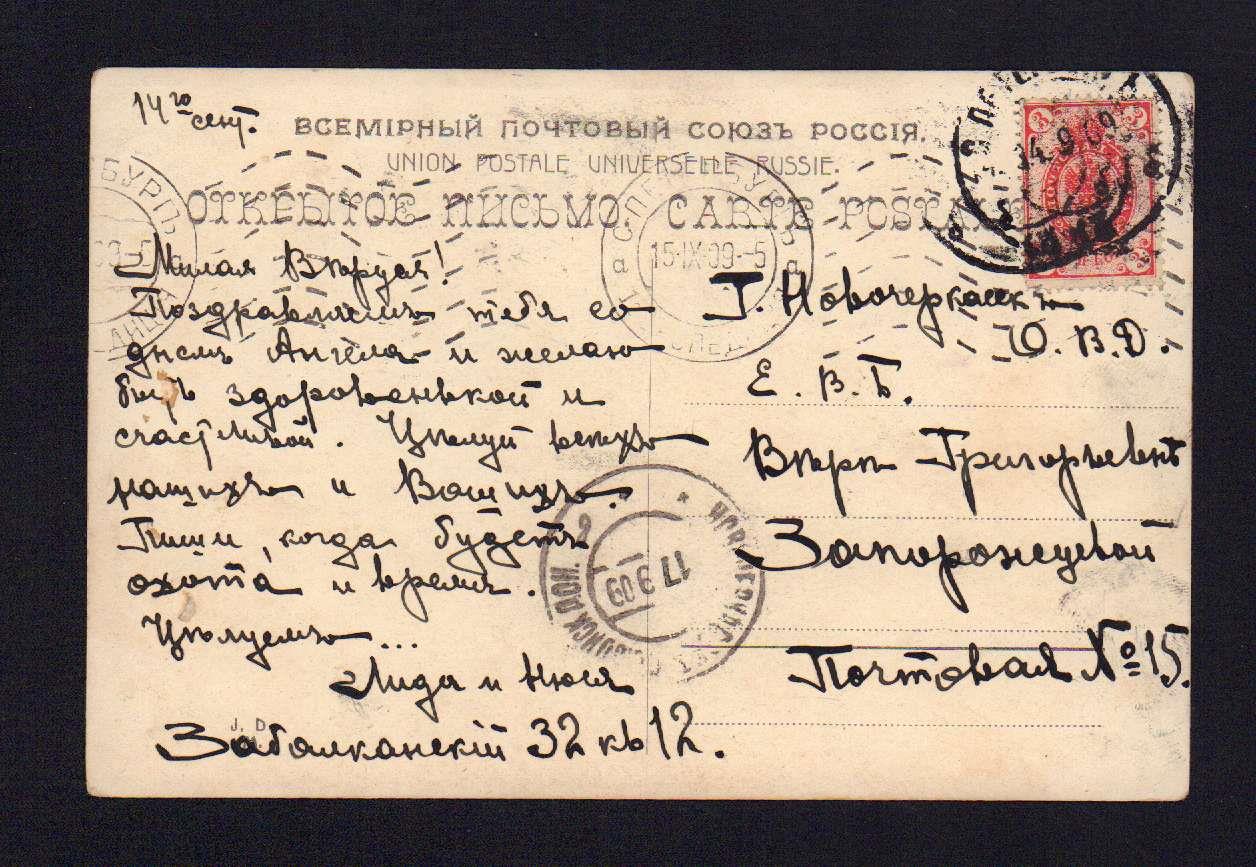 14го
сент.
ВСЕМІРНЫЙ ПОЧТОВЫЙ СОЮЗЪ РОССІЯ.
UNION POSTALE UNIVERSELLE RUSSIE.
ОТКРЫТОЕ ПИСЬМО CARTE POSTALE
Милая Вѣруся!
Поздравляемъ тебя со
днемъ Ангела и желаю
быть здоровенькой и
счастливой. Цѣлуй всѣхъ
нашихъ и Вашихъ.
Пиши, когда будетъ
охота и время.
Цѣлуемъ...
Лида и Нюся
Забалканскій 32 кв 12.
J. D.
Г. Новочеркасскъ
О. В. Д.
Е. В. Б.
Вѣрѣ Григорьевнѣ
Запорожцевой
Почтовая № 15.
БУРГЪ
С.ПЕТЕРБУРГЪ
15·IX·09·-5
14.9.09
17 9 09
3